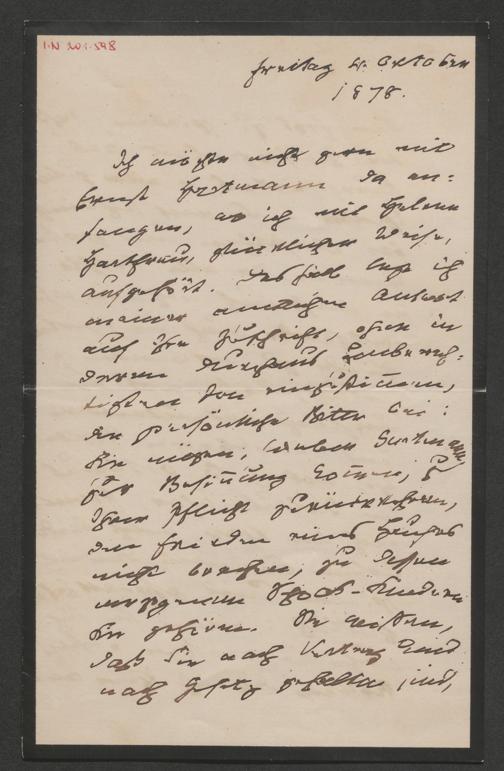 I.N 201.598
Freitag 4. Oktober
1878.
Ich möchte nicht gern mit
Ernst Hartmann da an=
fangen, wo ich mit Helene
Hartmann, glücklicher Weise,
aufgehört. Deshalb lege ich
meiner amtlichen Antwort
auf Ihre Zuschrift, ohne in
deren durchaus
Ton einzustimmen,
die persönliche Bitte bei:
Sie mögen, lieber Hartmann,
zur Besinnung kommen, zu
Ihrer Pflicht zurückkehren,
den Frieden eines Hauses
nicht brechen, zu dessen
Schoß-Kindern
Sie gehören. Sie wissen,
daß Sie nach Vertrag und
nach Gesetz gehalten sind,